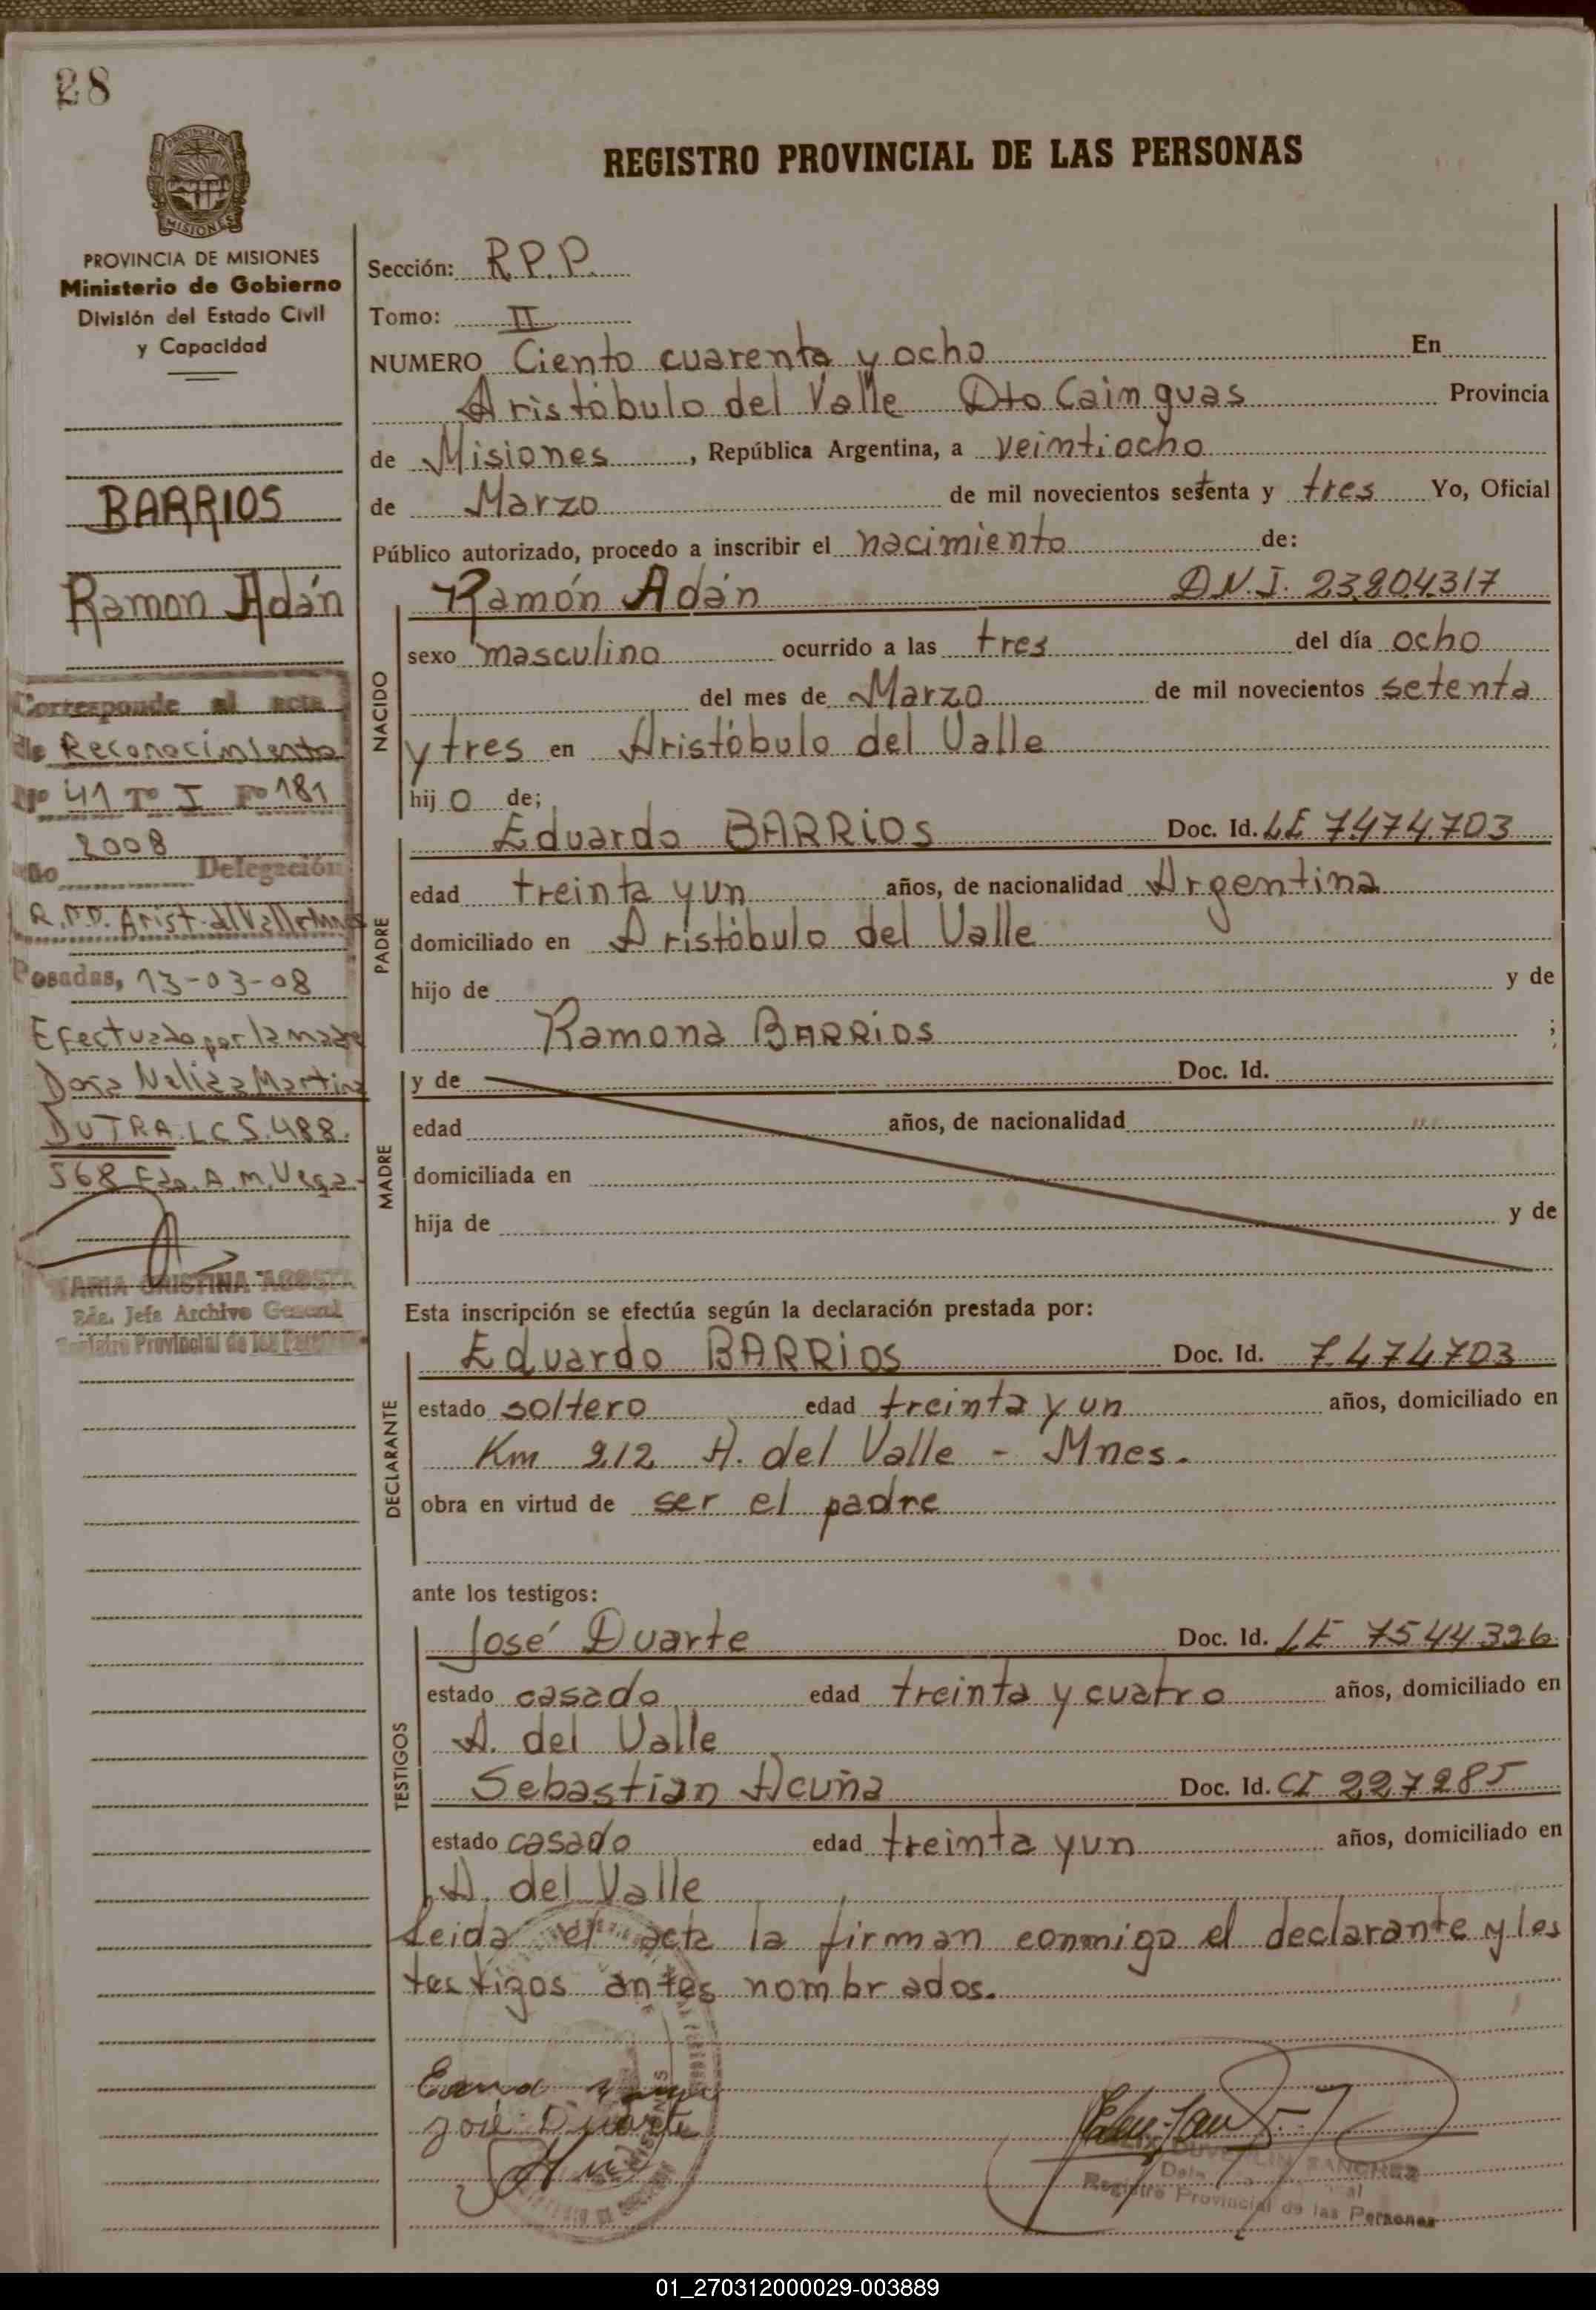 28
PROVINCIA DE MISIONES
PROVINCIA DE MISIONES
Ministerio de Gobierno
División del Estado Civil
y Capacidad
BARRIOS
Ramon Adán
Corresponde al acta
de Reconocimiento
Nº 41 Tº I Fº 181
2008
Año Delegación
R.P.P. Arist. del Valle Mnes
Posadas, 13-03-08
Efectuado por la madre
Doña Nelida Martina
DUTRA LC 5.488.
568 Fdo. A. M. Vega.
MARIA CRISTINA ACOSTA
2da. Jefe Archivo General
Registro Provincial de las Personas
REGISTRO PROVINCIAL DE LAS PERSONAS
Sección: R.P.P.
Tomo: II
NUMERO Ciento cuarenta y ocho En
Aristóbulo del Valle Dto Cainguas Provincia
de Misiones, República Argentina, a veintiocho
de Marzo de mil novecientos setenta y tres Yo, Oficial
Público autorizado, procedo a inscribir el nacimiento de:
NACIDO
Ramón Adán D.N.I. 23804317
sexo masculino ocurrido a las tres del día ocho
del mes de Marzo de mil novecientos setenta
y tres en Aristóbulo del Valle
hijo de;
PADRE
Eduardo BARRIOS Doc. Id. LE 7474703
edad treinta y un años, de nacionalidad Argentina
domiciliado en Aristóbulo del Valle
hijo de y de
Ramona BARRIOS ;
MADRE
y de Doc. Id.
edad años, de nacionalidad
domiciliada en
hija de y de
Esta inscripción se efectúa según la declaración prestada por:
DECLARANTE
Eduardo BARRIOS Doc. Id. 7474703
estado soltero edad treinta y un años, domiciliado en
Km 212 A. del Valle - Mnes.
obra en virtud de ser el padre
ante los testigos:
TESTIGOS
José Duarte Doc. Id. LE 7544326
estado casado edad treinta y cuatro años, domiciliado en
A. del Valle
Sebastian Acuña Doc. Id. CI 227285
estado casado edad treinta y un años, domiciliado en
A. del Valle
Leida el acta la firman conmigo el declarante y los
testigos antes nombrados.
José Duarte
SANCHEZ
Registro Provincial de las Personas
01_270312000029-003889